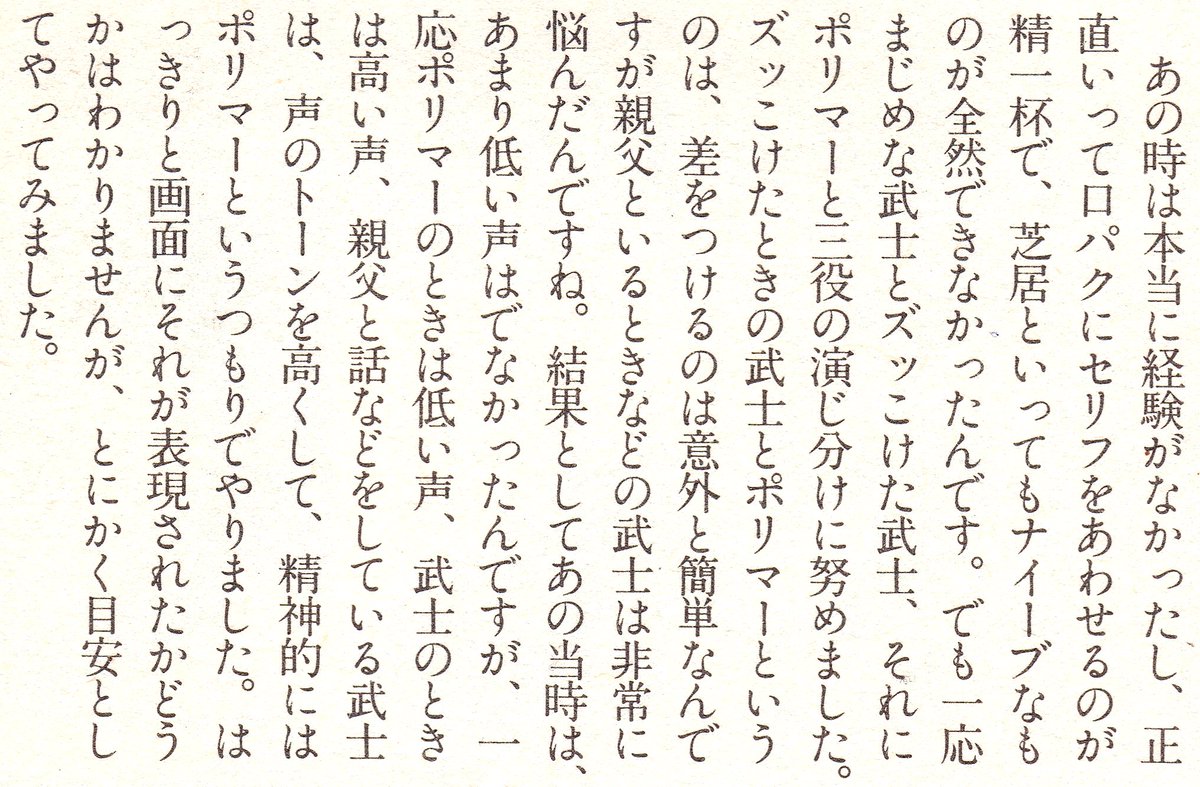 あの時は本当に経験がなかったし、正
直いって口パクにセリフをあわせるのが
精一杯で、芝居といってもナイーブなも
のが全然できなかったんです。でも一応
まじめな武士とズッこけた武士、それに
ポリマーと三役の演じ分けに努めました。
ズッこけたときの武士とポリマーという
のは、差をつけるのは意外と簡単なんで
すが親父といるときなどの武士は非常に
悩んだんですね。結果としてあの当時は、
あまり低い声はでなかったんですが、一
応ポリマーのときは低い声、武士のとき
は高い声、親父と話などをしている武士
は、声のトーンを高くして、精神的には
ポリマーというつもりでやりました。は
っきりと画面にそれが表現されたかどう
かはわかりませんが、とにかく目安とし
てやってみました。